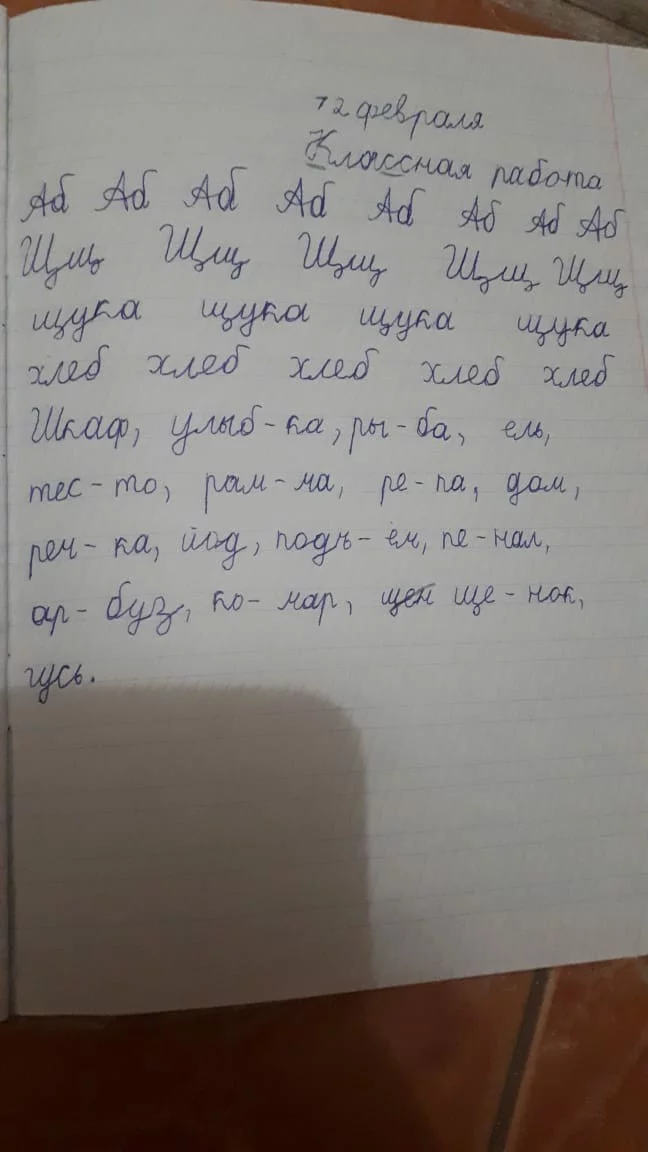 12 февраля
Классная работа
Аб Аб Аб Аб Аб Аб Аб Аб
Щщ Щщ Щщ Щщ Щщ
щука щука щука щука
хлеб хлеб хлеб хлеб хлеб
Шкаф, улыб-ка, ры-ба, ель,
тес-то, рам-ма, ре-па, дом,
реч-ка, йод, подъ-ём, пе-нал,
ар-буз, ко-мар, ще-нок,
гусь.